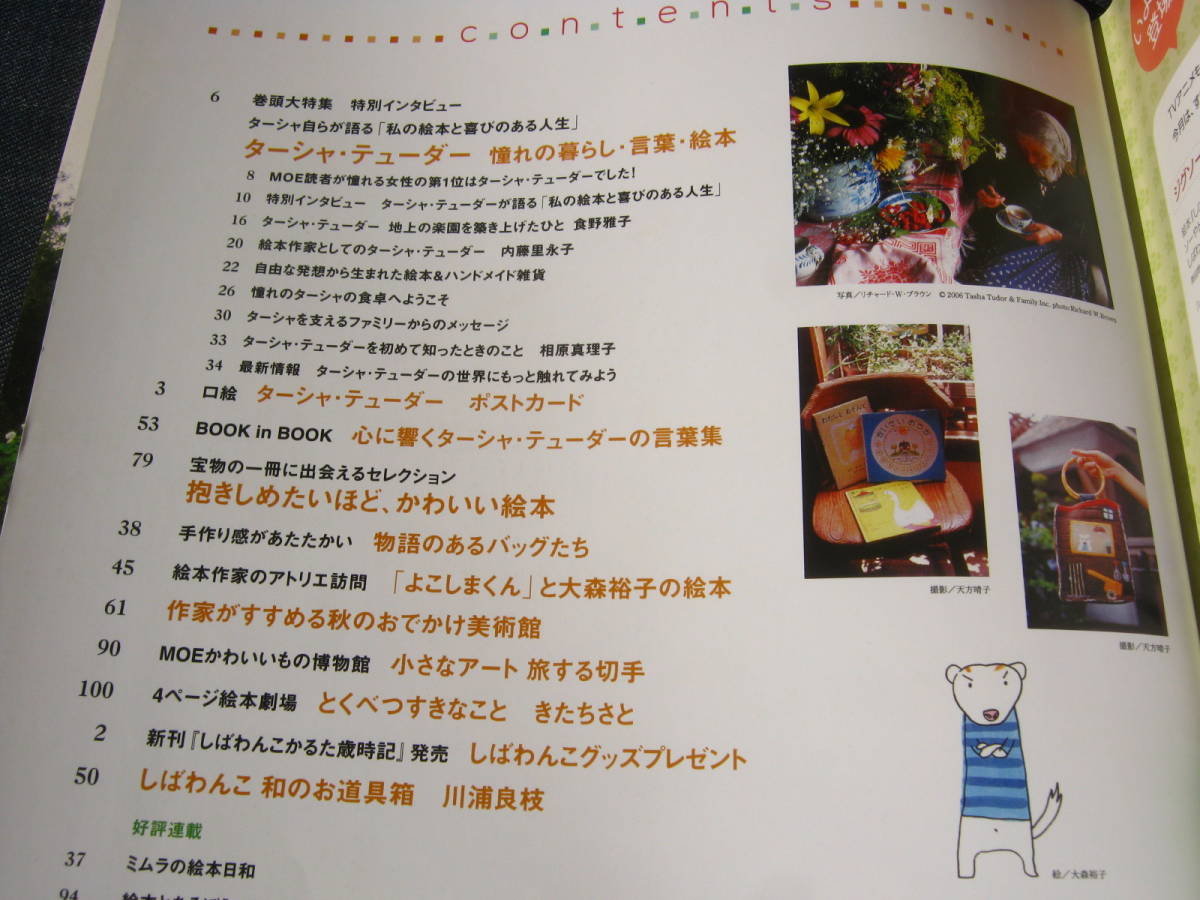 contents
6 巻頭大特集 特別インタビュー
ターシャ自らが語る「私の絵本と喜びのある人生」
ターシャ・テューダー 憧れの暮らし・言葉・絵本
8 MOE読者が憧れる女性の第1位はターシャ・テューダーでした!
10 特別インタビュー ターシャ・テューダーが語る「私の絵本と喜びのある人生」
16 ターシャ・テューダー 地上の楽園を築き上げたひと 食野雅子
20 絵本作家としてのターシャ・テューダー 内藤里永子
22 自由な発想から生まれた絵本&ハンドメイド雑貨
26 憧れのターシャの食卓へようこそ
30 ターシャを支えるファミリーからのメッセージ
33 ターシャ・テューダーを初めて知ったときのこと 相原真理子
34 最新情報 ターシャ・テューダーの世界にもっと触れてみよう
3 口絵 ターシャ・テューダー ポストカード
53 BOOK in BOOK 心に響くターシャ・テューダーの言葉集
79 宝物の一冊に出会えるセレクション
抱きしめたいほど、かわいい絵本
38 手作り感があたたかい 物語のあるバッグたち
45 絵本作家のアトリエ訪問 「よこしまくん」と大森裕子の絵本
61 作家がすすめる秋のおでかけ美術館
90 MOEかわいいもの博物館 小さなアート 旅する切手
100 4ページ絵本劇場 とくべつすきなこと きたちさと
2 新刊『しばわんこかるた歳時記』発売 しばわんこグッズプレゼント
50 しばわんこ 和のお道具箱 川浦良枝
好評連載
37 ミムラの絵本日和
94
写真/リチャード・W・ブラウン © 2006 Tasha Tudor & Family Inc. photo Richard W. Brown
撮影/天方晴子
撮影/天方晴子
絵/大森裕子
登場
TVアニメ
今月は、